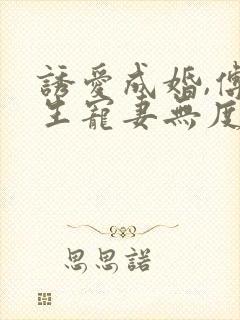 誘愛成婚,傅
生寵妻無度
思思諾